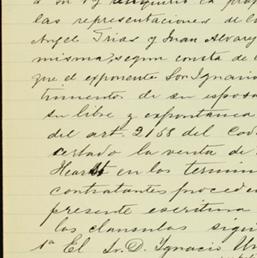 las representaciones de l
Angel Trias y Juan Alvare
misma, segun consta de
que el exponente Don Ignacio
timiento de su esposa
su libre y espontanea
del art. 2158 del Cod
certado la venta de
Hearst en los termin
contratantes proceden
presente escritura
las clausulas sigui
1a El Sr. D. Ignacio Ur